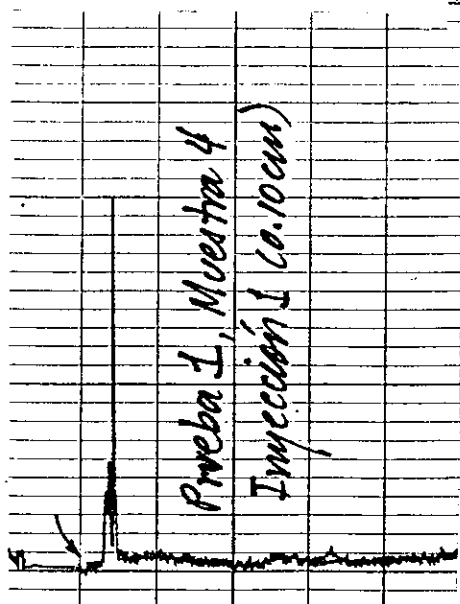 Prueba 1, Muestra 4
Inyección 1 (0.10 cm)